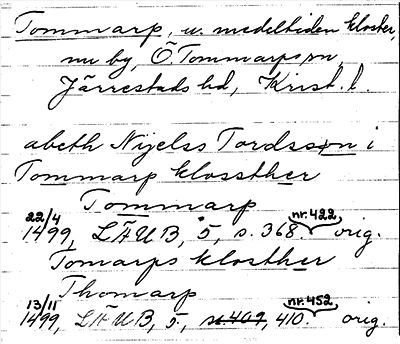 Tommarp, u. medeltiden kloster,
nu by, Ö. Tommarps sn,
Järrestads hd, Krist. l.
abeth Nijelss Tordsson i
Tommarp klossther
Tommarp
22/4 1499, LÄUB, 5, s. 368. nr. 422 orig.
Tomarps klosther
Thomarp
13/11 1499, LÄUB, 5, s. 409, 410. nr. 452 orig.